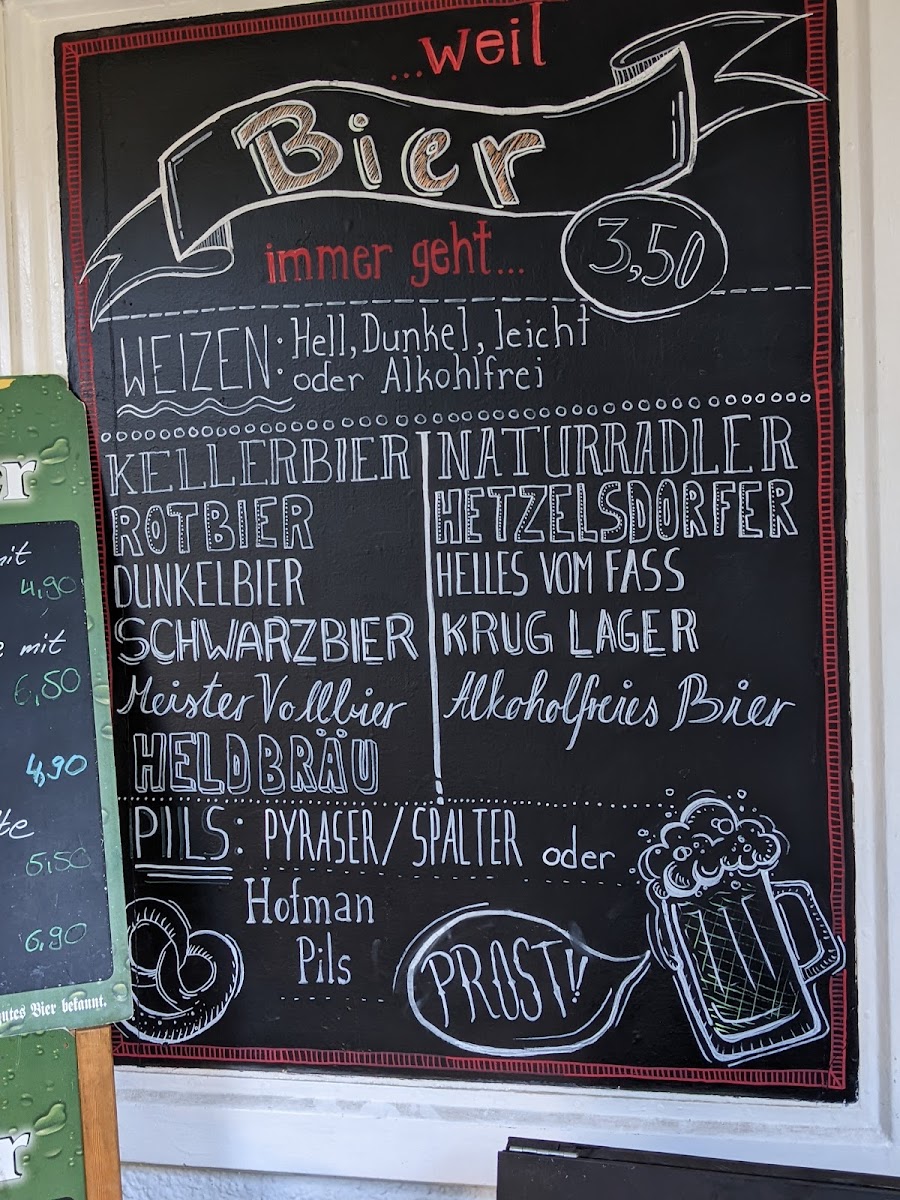 ...weil
Bier
immer geht...
3,50
WEIZEN: Hell, Dunkel, leicht
oder Alkohlfrei
KELLERBIER
ROTBIER
DUNKELBIER
SCHWARZBIER
Meister Vollbier
HELDBRÄU
NATURRADLER
HETZELSDORFER
HELLES VOM FASS
KRUG LAGER
Alkoholfreies Bier
PILS: PYRASER/SPALTER oder
Hofman
Pils
PROST!!
er
mit
4,90
mit
6,50
4,90
5,50
6,90
gutes Bier bekannt.
er